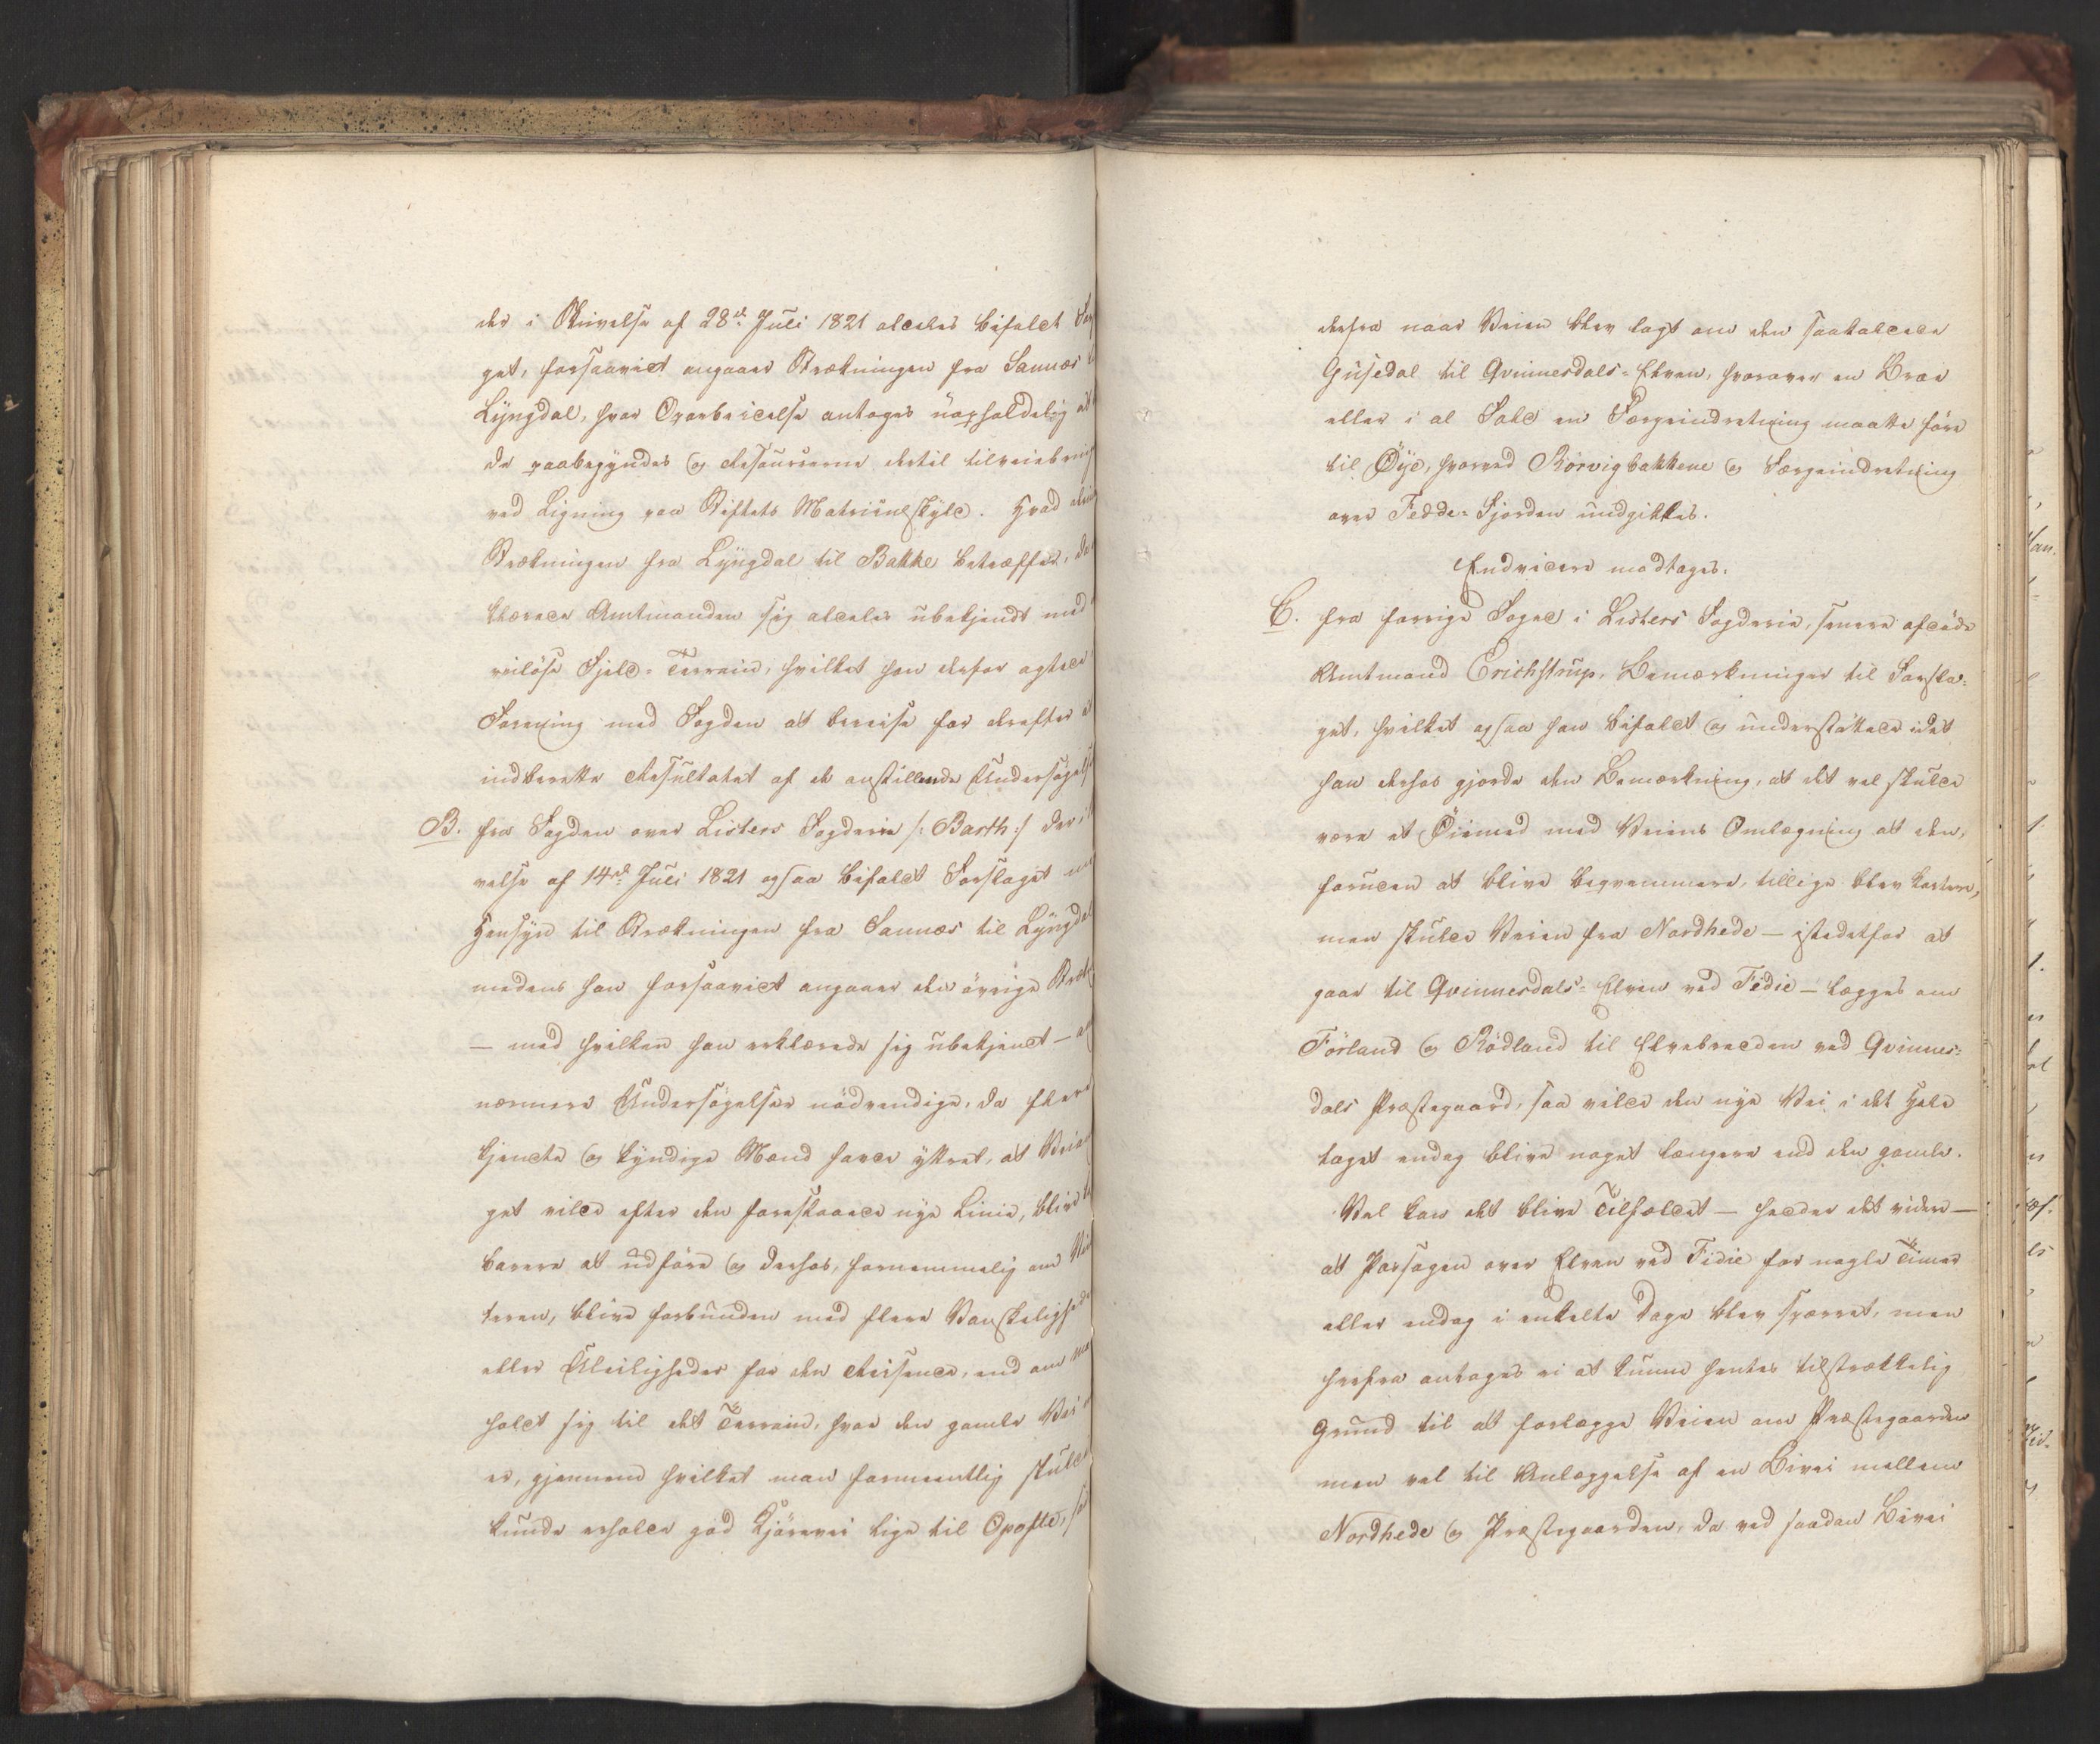 der i Skrivelse af 28de Juli 1821 aldeles bifaldt For
get, forsaavidt angaaer Strækningen fra Sannæs
Lyngdal, hvor Overbeviisning antages uopholdelig at
da paabegyndes og Ressourcerne dertil tilveiebring
ved Ligning paa Stiftets Matriculskyld. Hvad
Strækningen fra Lyngdal til Bakke betræffer,
klærede Amtmanden sig aldeles ubekjendt med
veiløse Fjeld-Terrain, hvilket han derfor agtede
Forening med Fogden at bereise for derefter at
indberette Resultatet af de anstillende Undersøgelse
B. fra Fogden over Listers Fogderie /: Barth :/ der i
velse af 14de Juli 1821 ogsaa bifaldt Forslaget
Hensyn til Strækningen fra Sannæs til Lyngdal
medens han forsaavidt angaaer den øvrige Stræk
— med hvilken han erklærede sig ubekjendt —
nærmere Undersøgelser nødvendige, da flere
kjendte og kyndige Mænd havde yttret, at Veian
get vilde efter den foreslaaede nye Linie, blive
barere at udføre og derhos, fornemmelig om Vin
teren, blive forbunden med flere Vanskelighede
eller Uleiligheder for den Reisende, end om man
holdt sig til det Terrain, hvor den gamle Vei
er, gjennem hvilket man formeentlig skulde
kunde erholde god Kjørevei lige til Opofte,
derfra naar Veien blev lagt om den saakaldede
Gusedal til Qvinnesdals-Elven, hvorover en Broe
eller i al Fald en Færgeindretning maatte føre
til Øye, hvorved Rørvigbakkene og Færgeindretning
over Fedde-Fjorden undgikkes.
Endvidere modtoges:
C. fra forrige Foged i Listers Fogderie, senere afdøde
Amtmand Erichstrup, Bemærkninger til Forsla-
get, hvilket ogsaa han bifaldt og understøttede idet
han derhos gjorde den Bemærkning, at det vel skulde
være et Øiemed med Veiens Omlægning at den,
foruden at blive beqvemmere, tillige blev kortere,
men skulde Veien fra Nordhede — istedetfor at
gaae til Qvinnesdals-Elven ved Fidie — lægges om
Førland og Rødland til Elvebredden ved Qvinnes-
dals Præstegaard, saa vilde den nye Vei i det Hele
taget endog blive noget længere end den gamle.
Vel kan det blive Tilfældet — hedder det videre —
at Passagen over Elven ved Fidie for nogle Timer
eller endog i enkelte Dage blev spærret, men
herfra antages ei at kunne hentes tilstrækkelig
Grund til at forlægge Veien om Præstegaarden
men vel til Anlæggelse af en Bivei mellem
Nordhede og Præstegaarden, da ved saadan Bivei